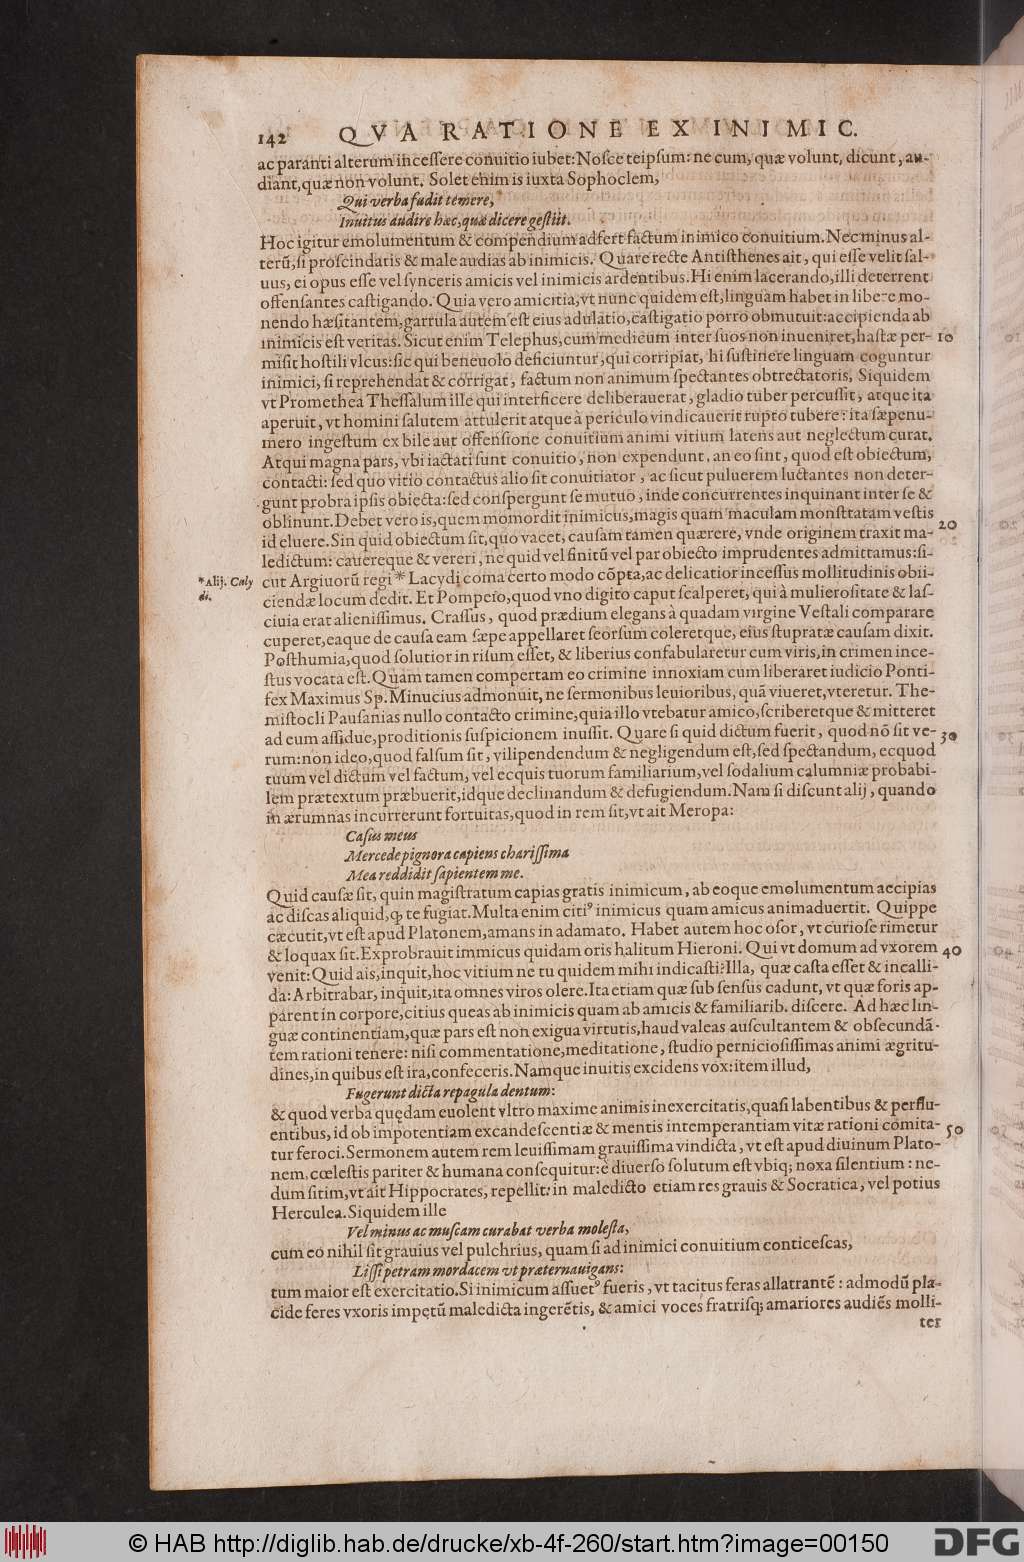 142 QVA RATIONE EX INIMIC.
ac paranti alterum incessere conuitio iubet: Nosce teipsum: ne cum, quæ volunt, dicunt, au-
diant, quæ non volunt. Solet enim is iuxta Sophoclem,
Qui verba fudit temere,
Inuitus audire hæc, quæ dicere gestiit.
Hoc igitur emolumentum & compendium adfert factum inimico conuitium. Nec minus al-
terū, si proscindatis & male audias ab inimicis. Quare recte Antisthenes ait, qui esse velit sal-
uus, ei opus esse vel synceris amicis vel inimicis ardentibus. Hi enim lacerando, illi deterrent
offensantes castigando. Quia vero amicitia, vt nunc quidem est, linguam habet in libere mo-
nendo hæsitantem, garrula autem est eius adulatio, castigatio porro obmutuit: accipienda ab
inimicis est veritas. Sicut enim Telephus, cum medicum inter suos non inueniret, hastæ per- 10
misit hostili vlcus: sic qui beneuolo deficiuntur, qui corripiat, hi sustinere linguam coguntur
inimici, si reprehendat & corrigat, factum non animum spectantes obtrectatoris, Siquidem
vt Promethea Thessalum ille qui interficere deliberauerat, gladio tuber percussit, atque ita
aperuit, vt homini salutem attulerit atque à periculo vindicauerit rupto tubere: ita sæpenu-
mero ingestum ex bile aut offensione conuitium animi vitium latens aut neglectum curat.
Atqui magna pars, vbi iactati sunt conuitio, non expendunt, an eo sint, quod est obiectum,
contacti: sed quo vitio contactus alio sit conuitiator, ac sicut puluerem luctantes non deter-
gunt probra ipsis obiecta: sed conspergunt se mutuo, inde concurrentes inquinant inter se &
oblinunt. Debet vero is, quem momordit inimicus, magis quam maculam monstratam vestis
id eluere. Sin quid obiectum sit, quo vacet, causam tamen quærere, vnde originem traxit ma- 20
ledictum: cauereque & vereri, ne quid vel finitū vel par obiecto imprudentes admittamus: si-
cut Argiuorū regi * Lacydi coma certo modo cōpta, ac delicatior incessus mollitudinis obii-
*Alij. Caly
di.
ciendæ locum dedit. Et Pompeio, quod vno digito caput scalperet, qui à mulierositate & las-
ciuia erat alienissimus. Crassus, quod prædium elegans à quadam virgine Vestali comparare
cuperet, eaque de causa eam sæpe appellaret seorsum coleretque, eius stupratæ causam dixit.
Posthumia, quod solutior in risum esset, & liberius confabularetur cum viris, in crimen ince-
stus vocata est. Quam tamen compertam eo crimine innoxiam cum liberaret iudicio Ponti-
fex Maximus Sp. Minucius admonuit, ne sermonibus leuioribus, quā viueret, vteretur. The-
mistocli Pausanias nullo contacto crimine, quia illo vtebatur amico, scriberetque & mitteret
ad eum assidue, proditionis suspicionem inussit. Quare si quid dictum fuerit, quod nō sit ve- 30
rum: non ideo, quod falsum sit, vilipendendum & negligendum est, sed spectandum, ecquod
tuum vel dictum vel factum, vel ecquis tuorum familiarium, vel sodalium calumniæ probabi-
lem prætextum præbuerit, idque declinandum & defugiendum. Nam si discunt alij, quando
in ærumnas incurrerunt fortuitas, quod in rem sit, vt ait Meropa:
Casus meus
Mercede pignora capiens charissima
Mea reddidit sapientem me.
Quid causæ sit, quin magistratum capias gratis inimicum, ab eoque emolumentum accipias
ac discas aliquid, qͥ te fugiat. Multa enim citiꝰ inimicus quam amicus animaduertit. Quippe
cæcutit, vt est apud Platonem, amans in adamato. Habet autem hoc osor, vt curiose rimetur
& loquax sit. Exprobrauit immicus quidam oris halitum Hieroni. Qui vt domum ad vxorem 40
venit: Quid ais, inquit, hoc vitium ne tu quidem mihi indicasti? Illa, quæ casta esset & incalli-
da: Arbitrabar, inquit, ita omnes viros olere. Ita etiam quæ sub sensus cadunt, vt quæ foris ap-
parent in corpore, citius queas ab inimicis quam ab amicis & familiarib. discere. Ad hæc lin-
guæ continentiam, quæ pars est non exigua virtutis, haud valeas auscultantem & obsecundā-
tem rationi tenere: nisi commentatione, meditatione, studio perniciosissimas animi ægritu-
dines, in quibus est ira, confeceris. Namque inuitis excidens vox: item illud,
Fugerunt dicta repagula dentum:
& quod verba quędam euolent vltro maxime animis inexercitatis, quasi labentibus & perflu-
entibus, id ob impotentiam excandescentiæ & mentis intemperantiam vitæ rationi comita- 50
tur feroci. Sermonem autem rem leuissimam grauissima vindicta, vt est apud diuinum Plato-
nem, cœlestis pariter & humana consequitur: è diuerso solutum est vbiq; noxa silentium: ne-
dum sitim, vt ait Hippocrates, repellit: in maledicto etiam res grauis & Socratica, vel potius
Herculea. Siquidem ille
Vel minus ac muscam curabat verba molesta,
cum eo nihil sit grauius vel pulchrius, quam si ad inimici conuitium conticescas,
Lissi petram mordacem vt præternauigans:
tum maior est exercitatio. Si inimicum assuetꝰ fueris, vt tacitus feras allatrantē: admodū pla-
cide feres vxoris impętū maledicta ingerētis, & amici voces fratrisq; amariores audiēs molli-
ter
© HAB http://diglib.hab.de/drucke/xb-4f-260/start.htm?image=00150
DFG